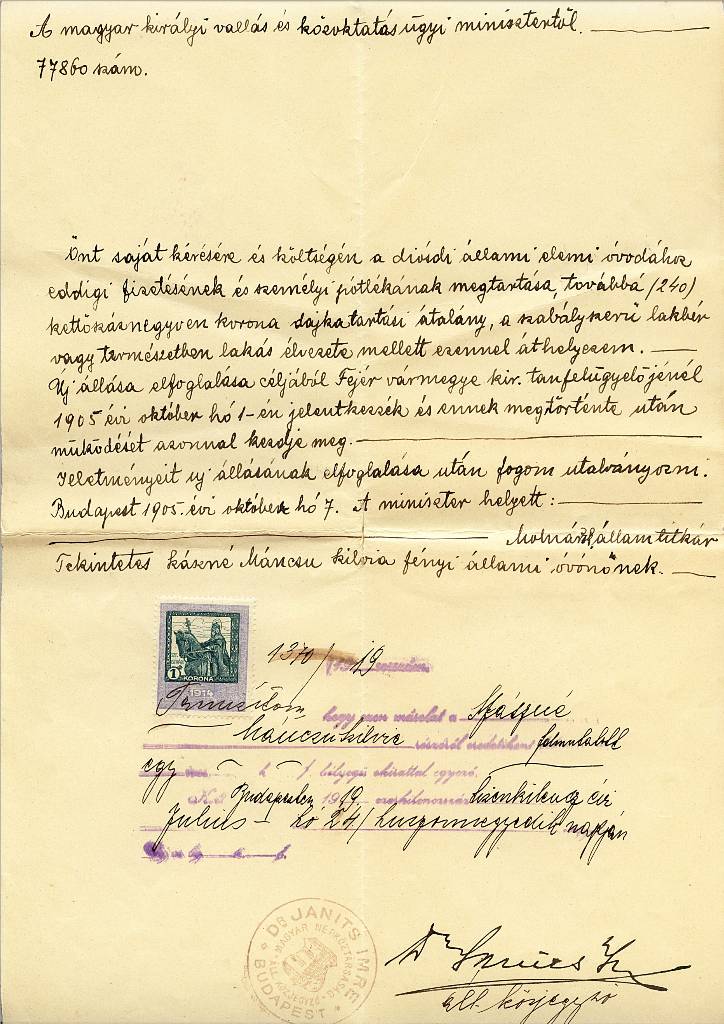 A magyar királyi vallás és közoktatásügyi minisztertől.
77860 szám.
Önt saját kérésére és költségén a diósdi állami elemi óvodához
eddigi fizetésének és személyi pótlékának megtartása, továbbá (240)
kettőszáznegyven korona dajkatartási átalány, a szabályszerű lakbér
vagy természetben lakás élvezete mellett ezennel áthelyezem.
Új állása elfoglalása céljából Fejér vármegye kir. tanfelügyelőjénél
1905 évi október hó 1-én jelentkezzék és ennek megtörténte után
működését azonnal kezdje meg.
Illetményeit uj állásának elfoglalása után fogom utalványozni.
Budapest 1905. évi október hó 7. A miniszter helyett:
Molnár államtitkár
Tekintetes Máncsu Szilvia fényi állami óvónőnek.
1 KORONA
1914
1370/19
hogy ezen másolat a Szászné
részéről eredetiben felmutatott
egy bélyeges okirattal egyező.
Kelt Budapesten 19 tizenkilencz év
Julius hó 24/ huszonnegyedik napján
Dr JANITS IMRE
MAGYAR NÉPKÖZTÁRSASÁG
ÁLL. KÖZJEGYZŐ
BUDAPEST
Dr
áll. közjegyző